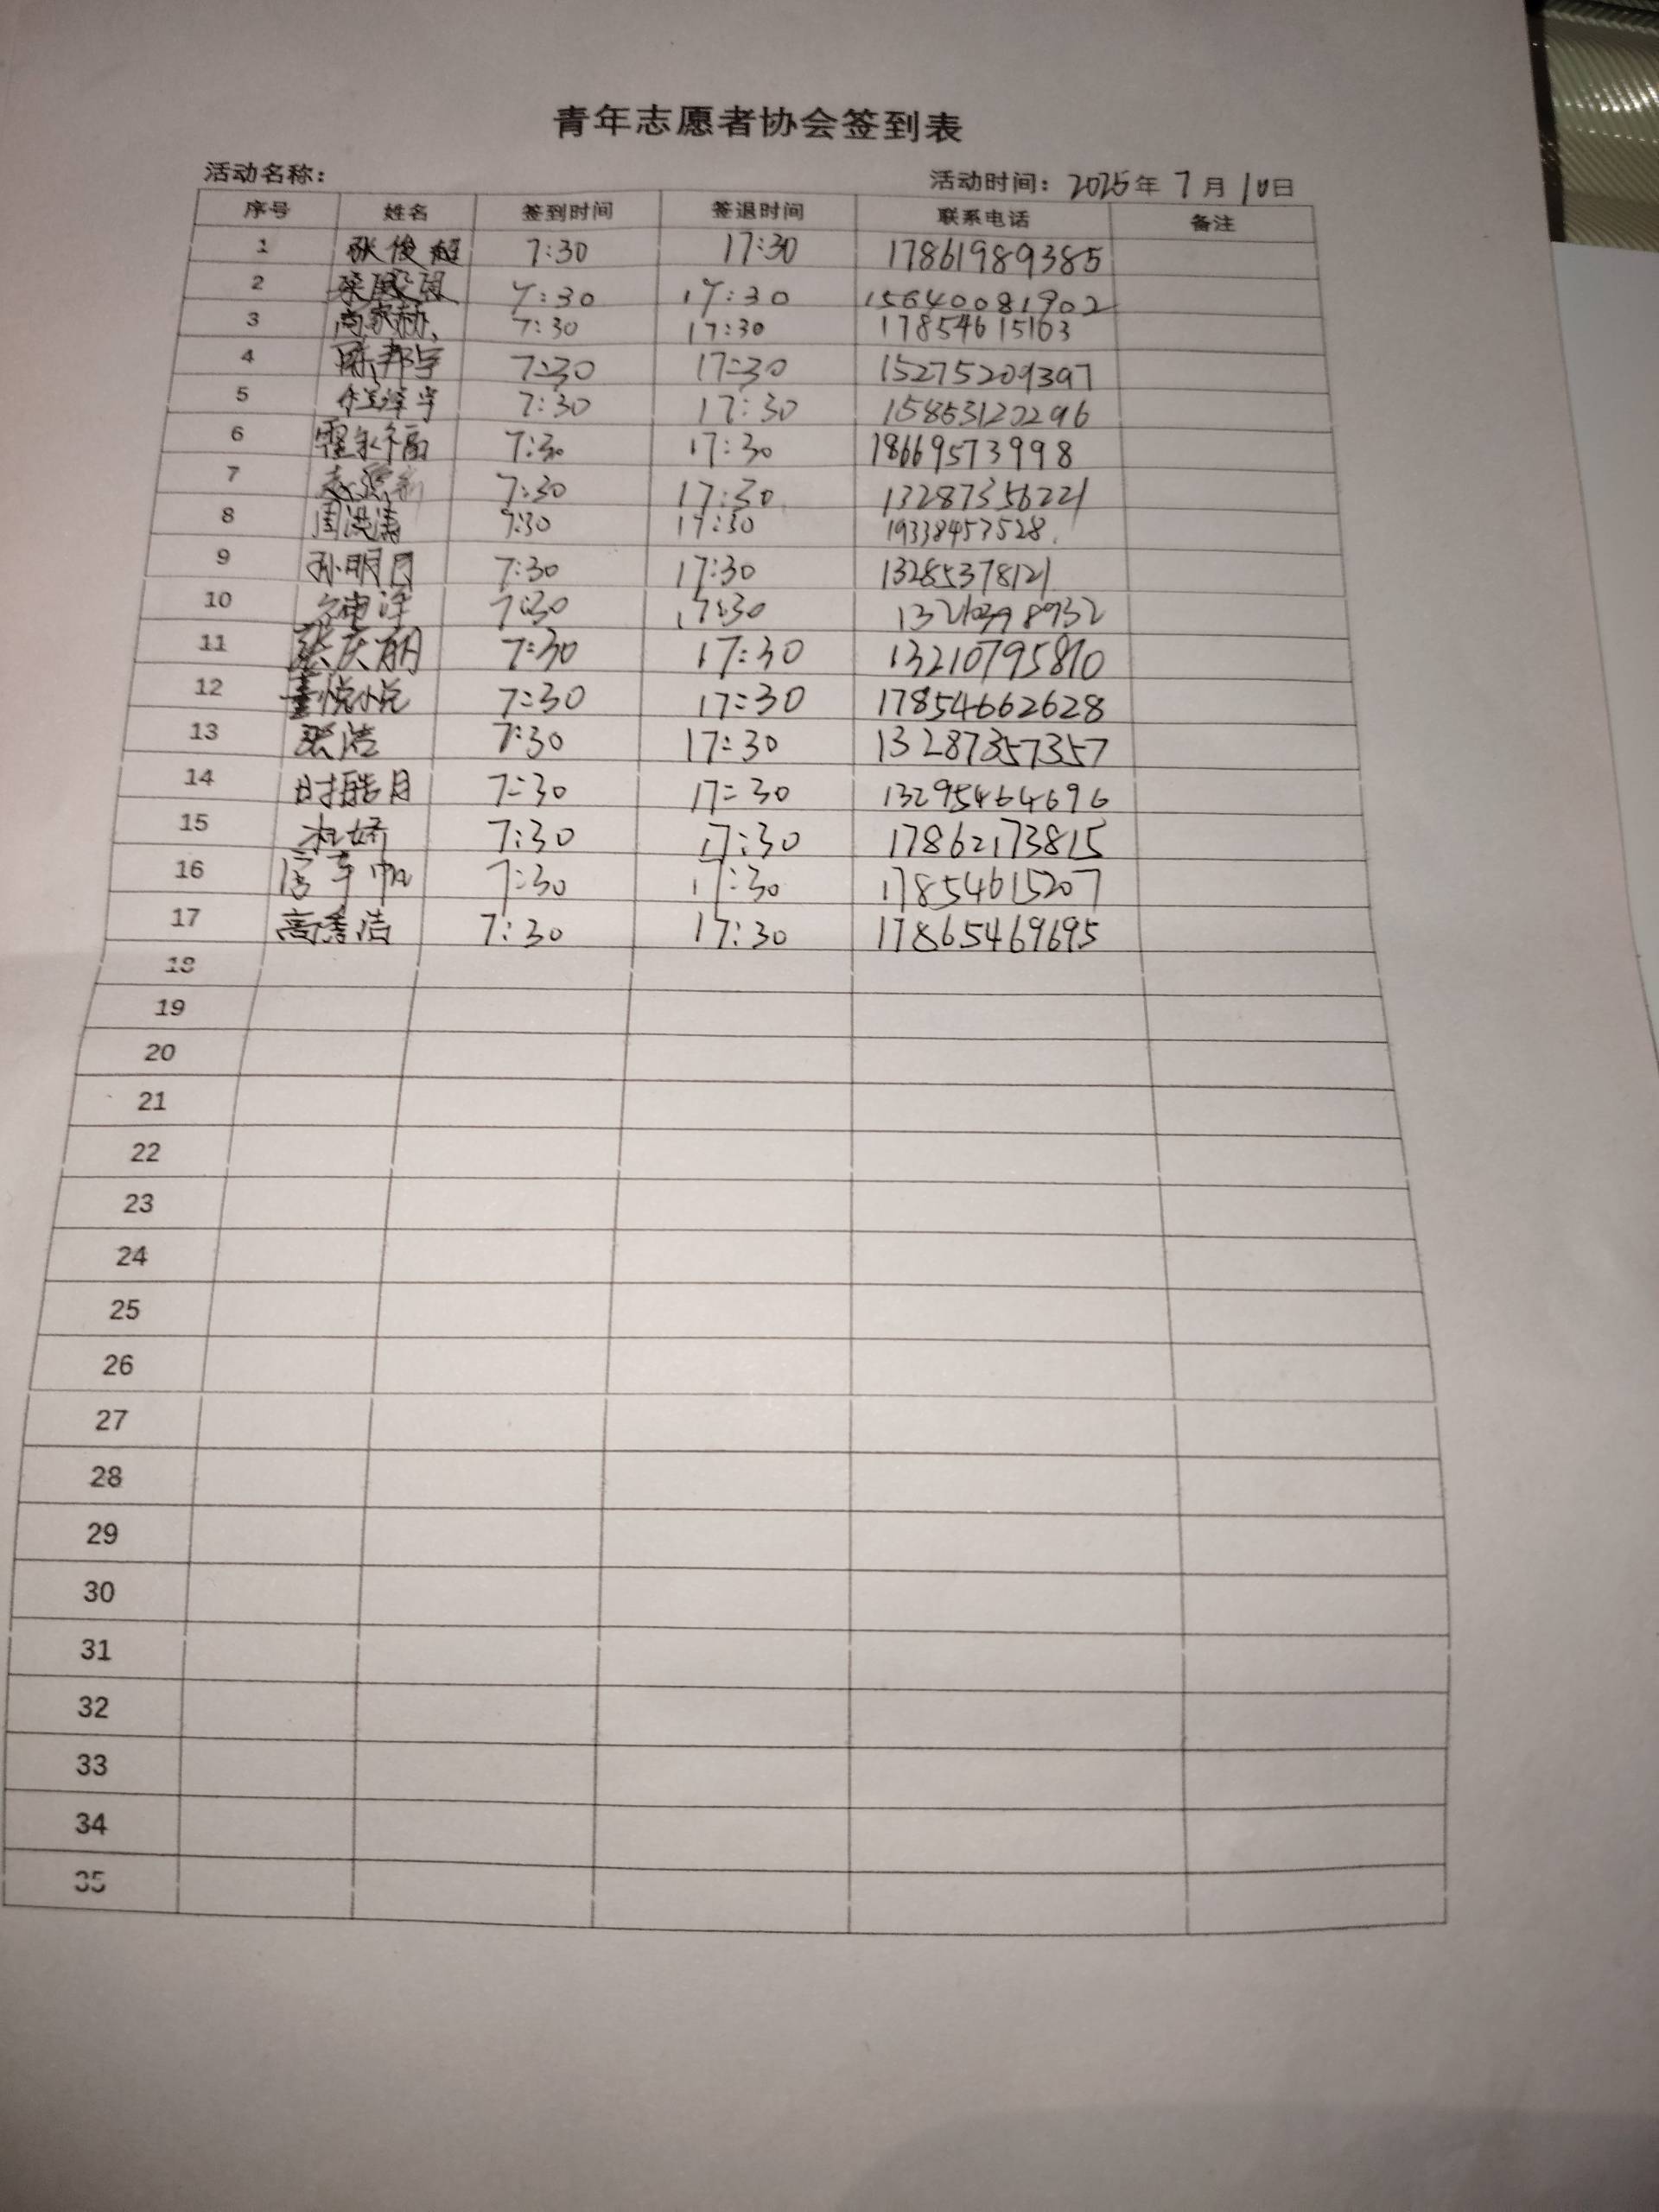 青年志愿者协会签到表
活动名称: 活动时间: 2025年 7月 10日
序号 姓名 签到时间 签退时间 联系电话 备注
1 张俊超 7:30 17:30 17861989385
2 7:30 17:30 15640081902
3 高家赫 7:30 17:30 17854615163
4 陈邦宇 7:30 17:30 15275209397
5 任泽宇 7:30 17:30 15853122296
6 霍永福 7:30 17:30 18669573998
7 7:30 17:30 13287356221
8 周洪涛 7:30 17:30 19338457528
9 孙明月 7:30 17:30 13285378121
10 7:30 17:30
11 张庆丽 7:30 17:30 13210795810
12 董悦悦 7:30 17:30 17854662628
13 张浩 7:30 17:30 13287357357
14 时皓月 7:30 17:30 13295464696
15 杜娇 7:30 17:30 17862173815
16 7:30 17:30 17854615207
17 高秀洁 7:30 17:30 17865469695
18
19
20
21
22
23
24
25
26
27
28
29
30
31
32
33
34
35